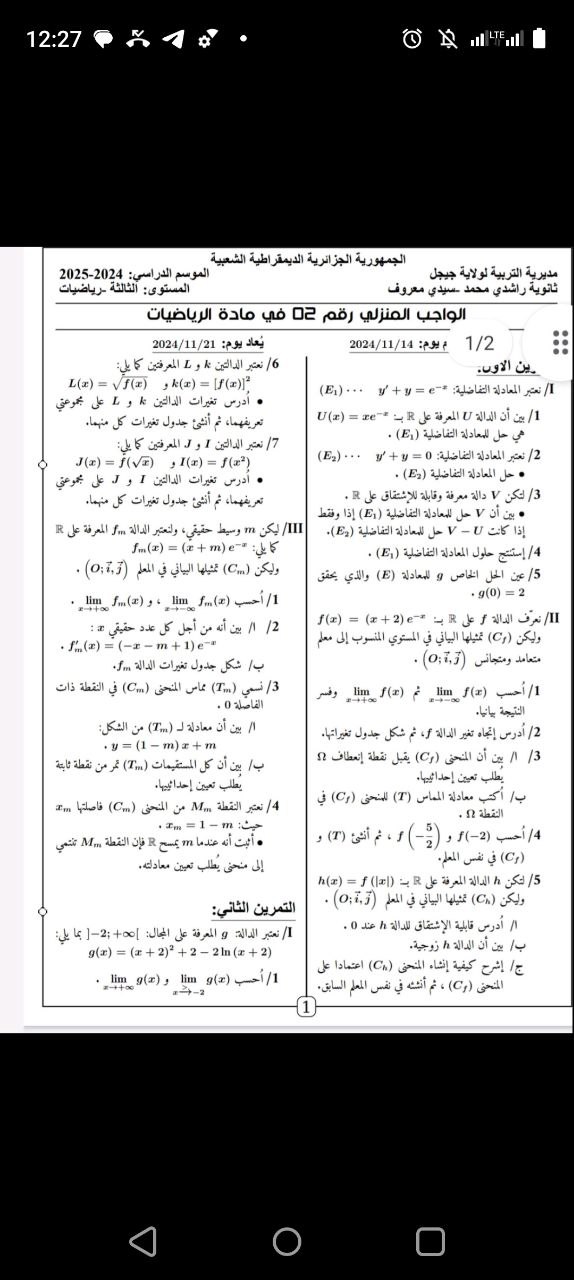 12:27
LTE
الجمهورية الجزائرية الديمقراطية الشعبية
مديرية التربية لولاية جيجل
الموسم الدراسي: 2024-2025
ثانوية راشدي محمد -سيدي معروف
المستوى: الثالثة -رياضيات
الواجب المنزلي رقم 02 في مادة الرياضيات
1/2
م يوم: 2024/11/14
يُعاد يوم: 2024/11/21
رين الأول:
I/ نعتبر المعادلة التفاضلية: (E₁)⋯ y′ + y = e⁻ˣ
1/ بين أن الدالة U المعرفة على ℝ بـ: U(x) = xe⁻ˣ
هي حل للمعادلة التفاضلية (E₁) .
2/ نعتبر المعادلة التفاضلية: (E₂)⋯ y′ + y = 0
• حل المعادلة التفاضلية (E₂) .
3/ لتكن V دالة معرفة وقابلة للإشتقاق على ℝ .
• بين أن V حل للمعادلة التفاضلية (E₁) إذا وفقط
إذا كانت V − U حل للمعادلة التفاضلية (E₂).
4/ إستنتج حلول المعادلة التفاضلية (E₁) .
5/ عين الحل الخاص g للمعادلة (E) والذي يحقق
g(0) = 2 .
II/ نعرّف الدالة f على ℝ بـ: f(x) = (x + 2) e⁻ˣ
وليكن (C_f) تمثيلها البياني في المستوي المنسوب إلى معلم
متعامد ومتجانس (O; i⃗, j⃗) .
1/ أحسب lim_{x→−∞} f(x) ثم lim_{x→+∞} f(x) وفسر
النتيجة بيانيا.
2/ أدرس إتجاه تغير الدالة f، ثم شكل جدول تغيراتها.
3/ ا/ بين أن المنحنى (C_f) يقبل نقطة إنعطاف Ω
يُطلب تعيين إحداثييها.
ب/ أكتب معادلة المماس (T) للمنحنى (C_f) في
النقطة Ω .
4/ أحسب f(−2) و f(−5/2) ، ثم أنشئ (T) و
(C_f) في نفس المعلم.
5/ لتكن h الدالة المعرفة على ℝ بـ: h(x) = f(|x|)
وليكن (C_h) تمثيلها البياني في المعلم (O; i⃗, j⃗) .
ا/ أدرس قابلية الإشتقاق للدالة h عند 0 .
ب/ بين أن الدالة h زوجية.
ج/ إشرح كيفية إنشاء المنحنى (C_h) اعتمادا على
المنحنى (C_f) ، ثم أنشئه في نفس المعلم السابق.
6/ نعتبر الدالتين k و L المعرفتين كما يلي:
k(x) = [f(x)]² و L(x) = √f(x)
• أدرس تغيرات الدالتين k و L على مجموعتي
تعريفهما، ثم أنشئ جدول تغيرات كل منهما.
7/ نعتبر الدالتين I و J المعرفتين كما يلي:
I(x) = f(x²) و J(x) = f(√x)
• أدرس تغيرات الدالتين I و J على مجموعتي
تعريفهما، ثم أنشئ جدول تغيرات كل منهما.
III/ ليكن m وسيط حقيقي، ولنعتبر الدالة f_m المعرفة على ℝ
كما يلي: f_m(x) = (x + m) e⁻ˣ
وليكن (C_m) تمثيلها البياني في المعلم (O; i⃗, j⃗) .
1/ أحسب lim_{x→−∞} f_m(x) ، و lim_{x→+∞} f_m(x) .
2/ ا/ بين أنه من أجل كل عدد حقيقي x :
f′_m(x) = (−x − m + 1) e⁻ˣ .
ب/ شكل جدول تغيرات الدالة f_m.
3/ نسمي (T_m) مماس المنحنى (C_m) في النقطة ذات
الفاصلة 0 .
ا/ بين أن معادلة لـ (T_m) من الشكل:
y = (1 − m) x + m .
ب/ بين أن كل المستقيمات (T_m) تمر من نقطة ثابتة
يُطلب تعيين إحداثييها.
4/ نعتبر النقطة M_m من المنحنى (C_m) فاصلتها x_m
حيث: x_m = 1 − m .
• أثبت أنه عندما m يمسح ℝ فإن النقطة M_m تنتمي
إلى منحنى يُطلب تعيين معادلته.
التمرين الثاني:
I/ نعتبر الدالة: g المعرفة على المجال: ]−2; +∞[ بما يلي:
g(x) = (x + 2)² + 2 − 2 ln (x + 2)
1/ أحسب lim_{x→−2^>} g(x) و lim_{x→+∞} g(x) .
1